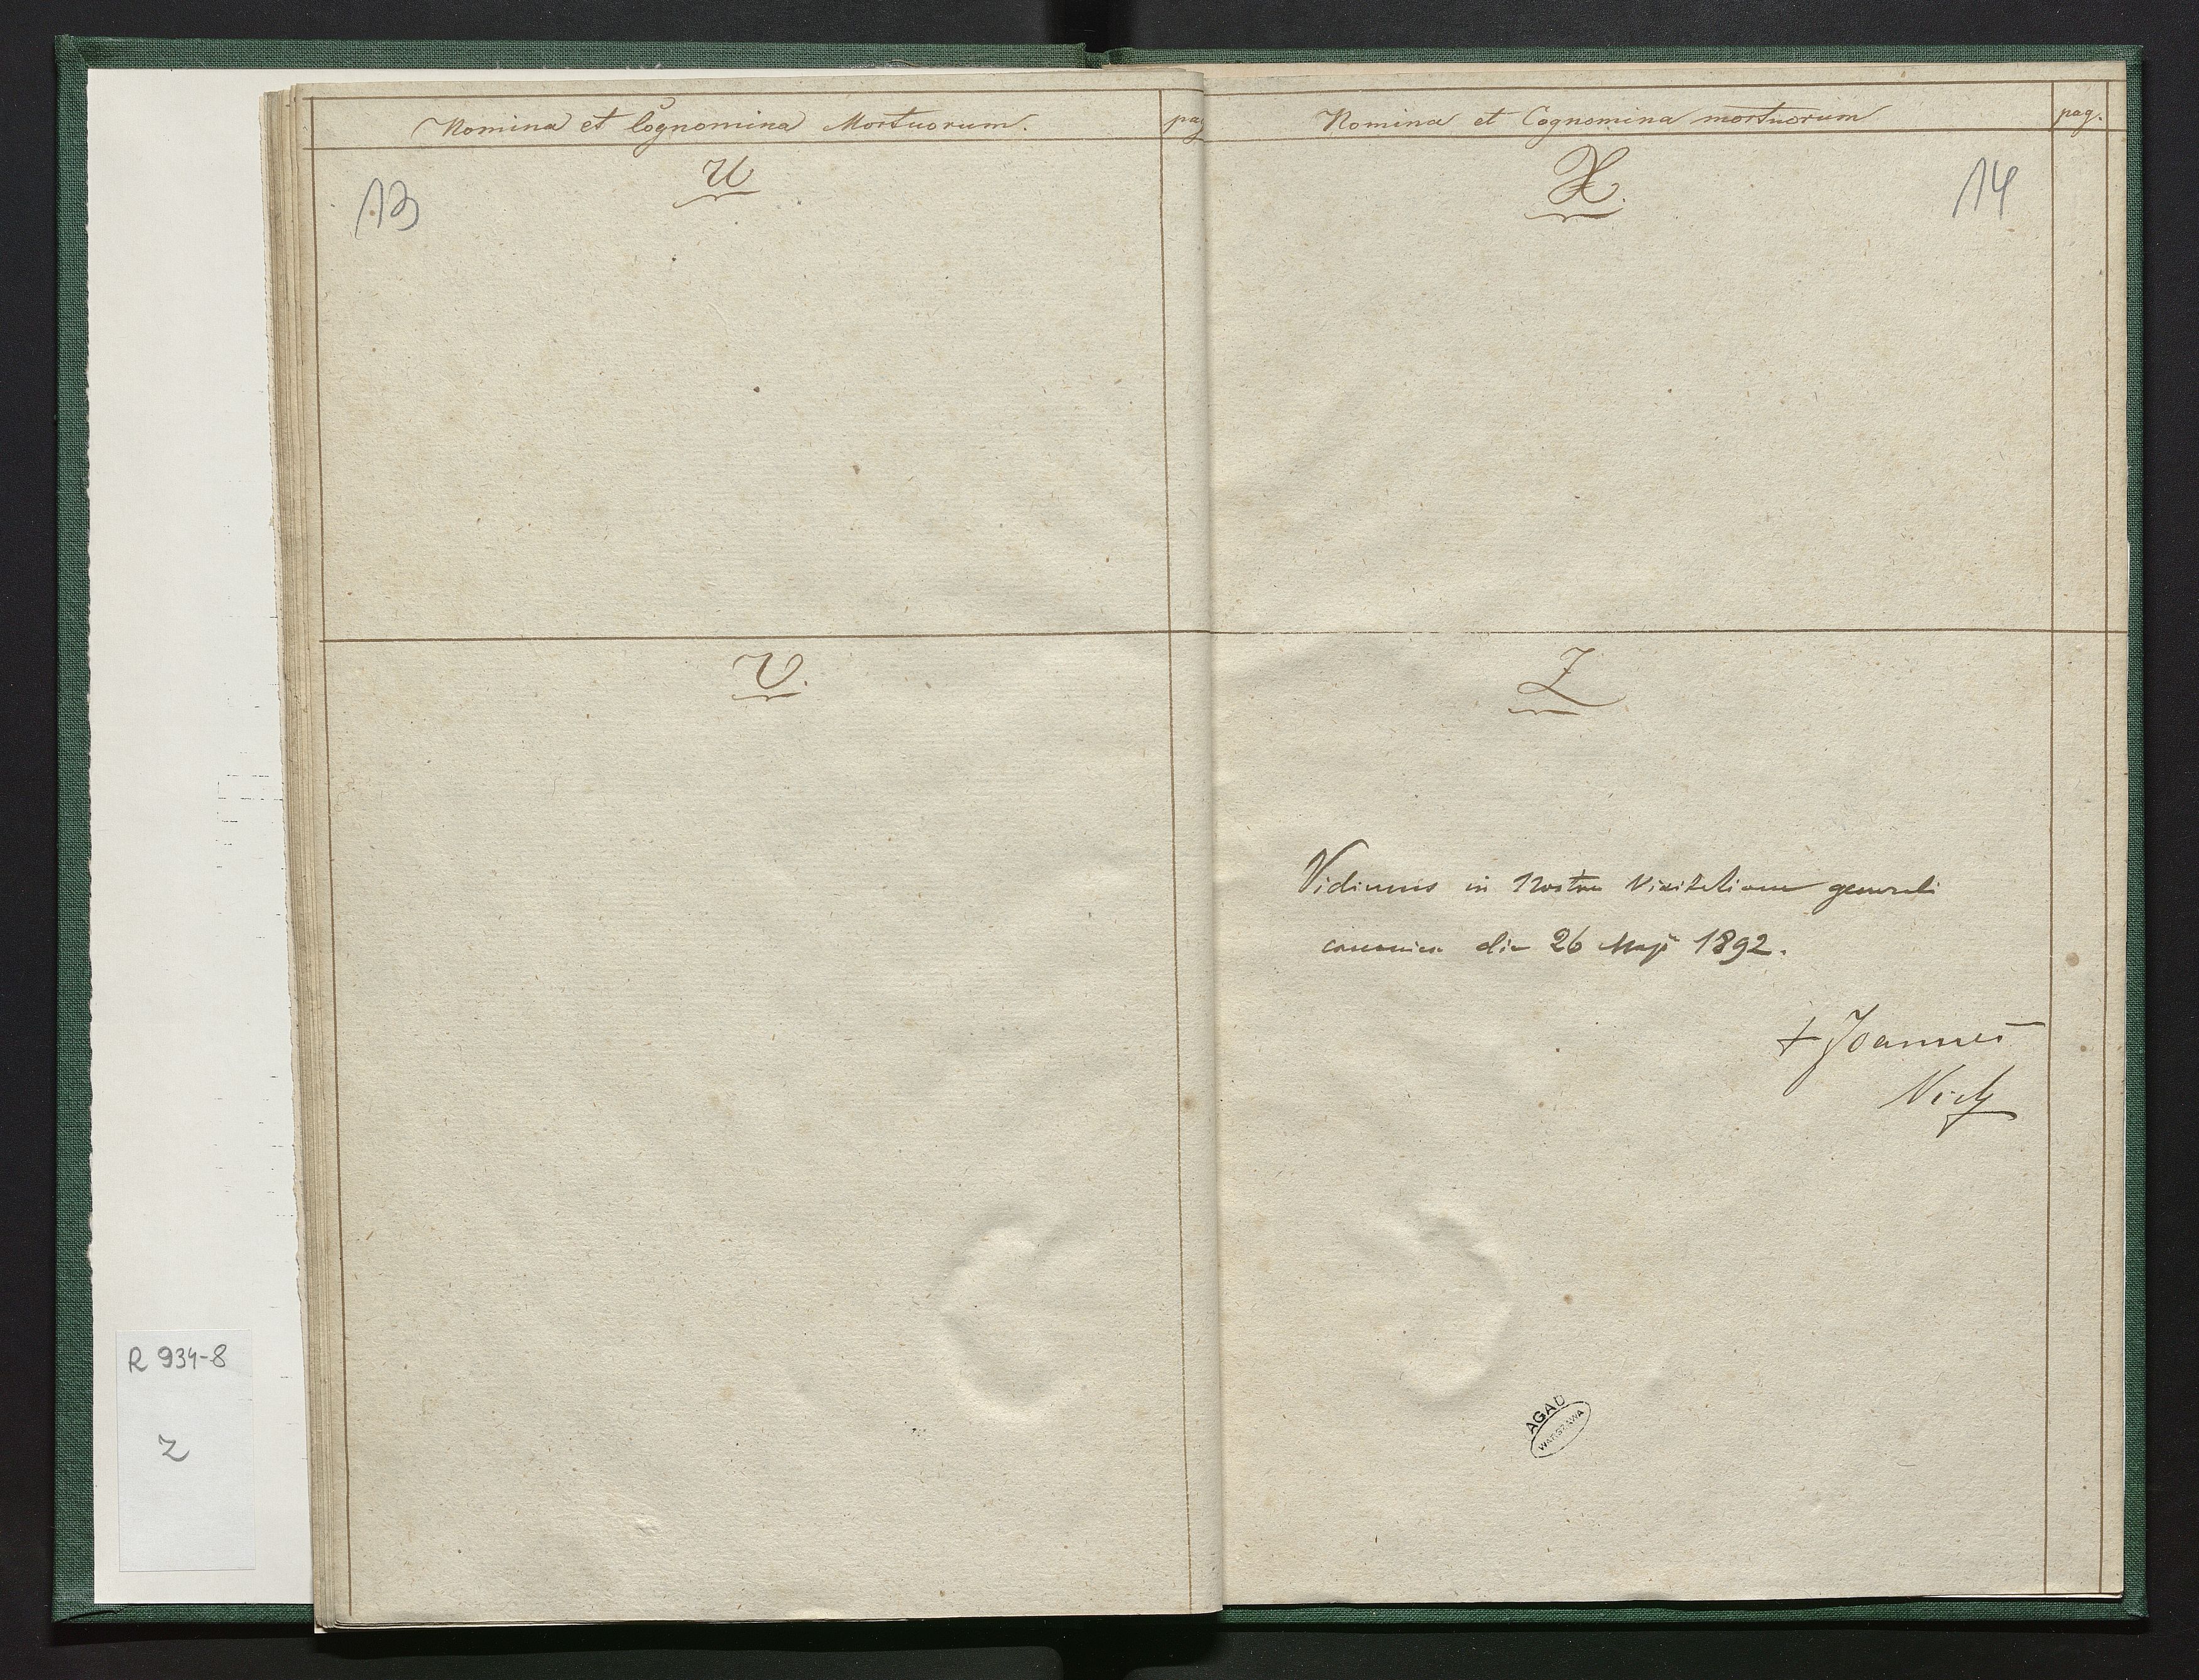 Nomina et Cognomina Mortuorum. pag
13
U
V.
R 934-8
Z
Nomina et Cognomina mortuorum pag.
14
X.
Z
Vidimus in Nostra Visitatione generali
canonica die 26 Maji 1892.
+ Joannes
AGAD
WARSZAWA